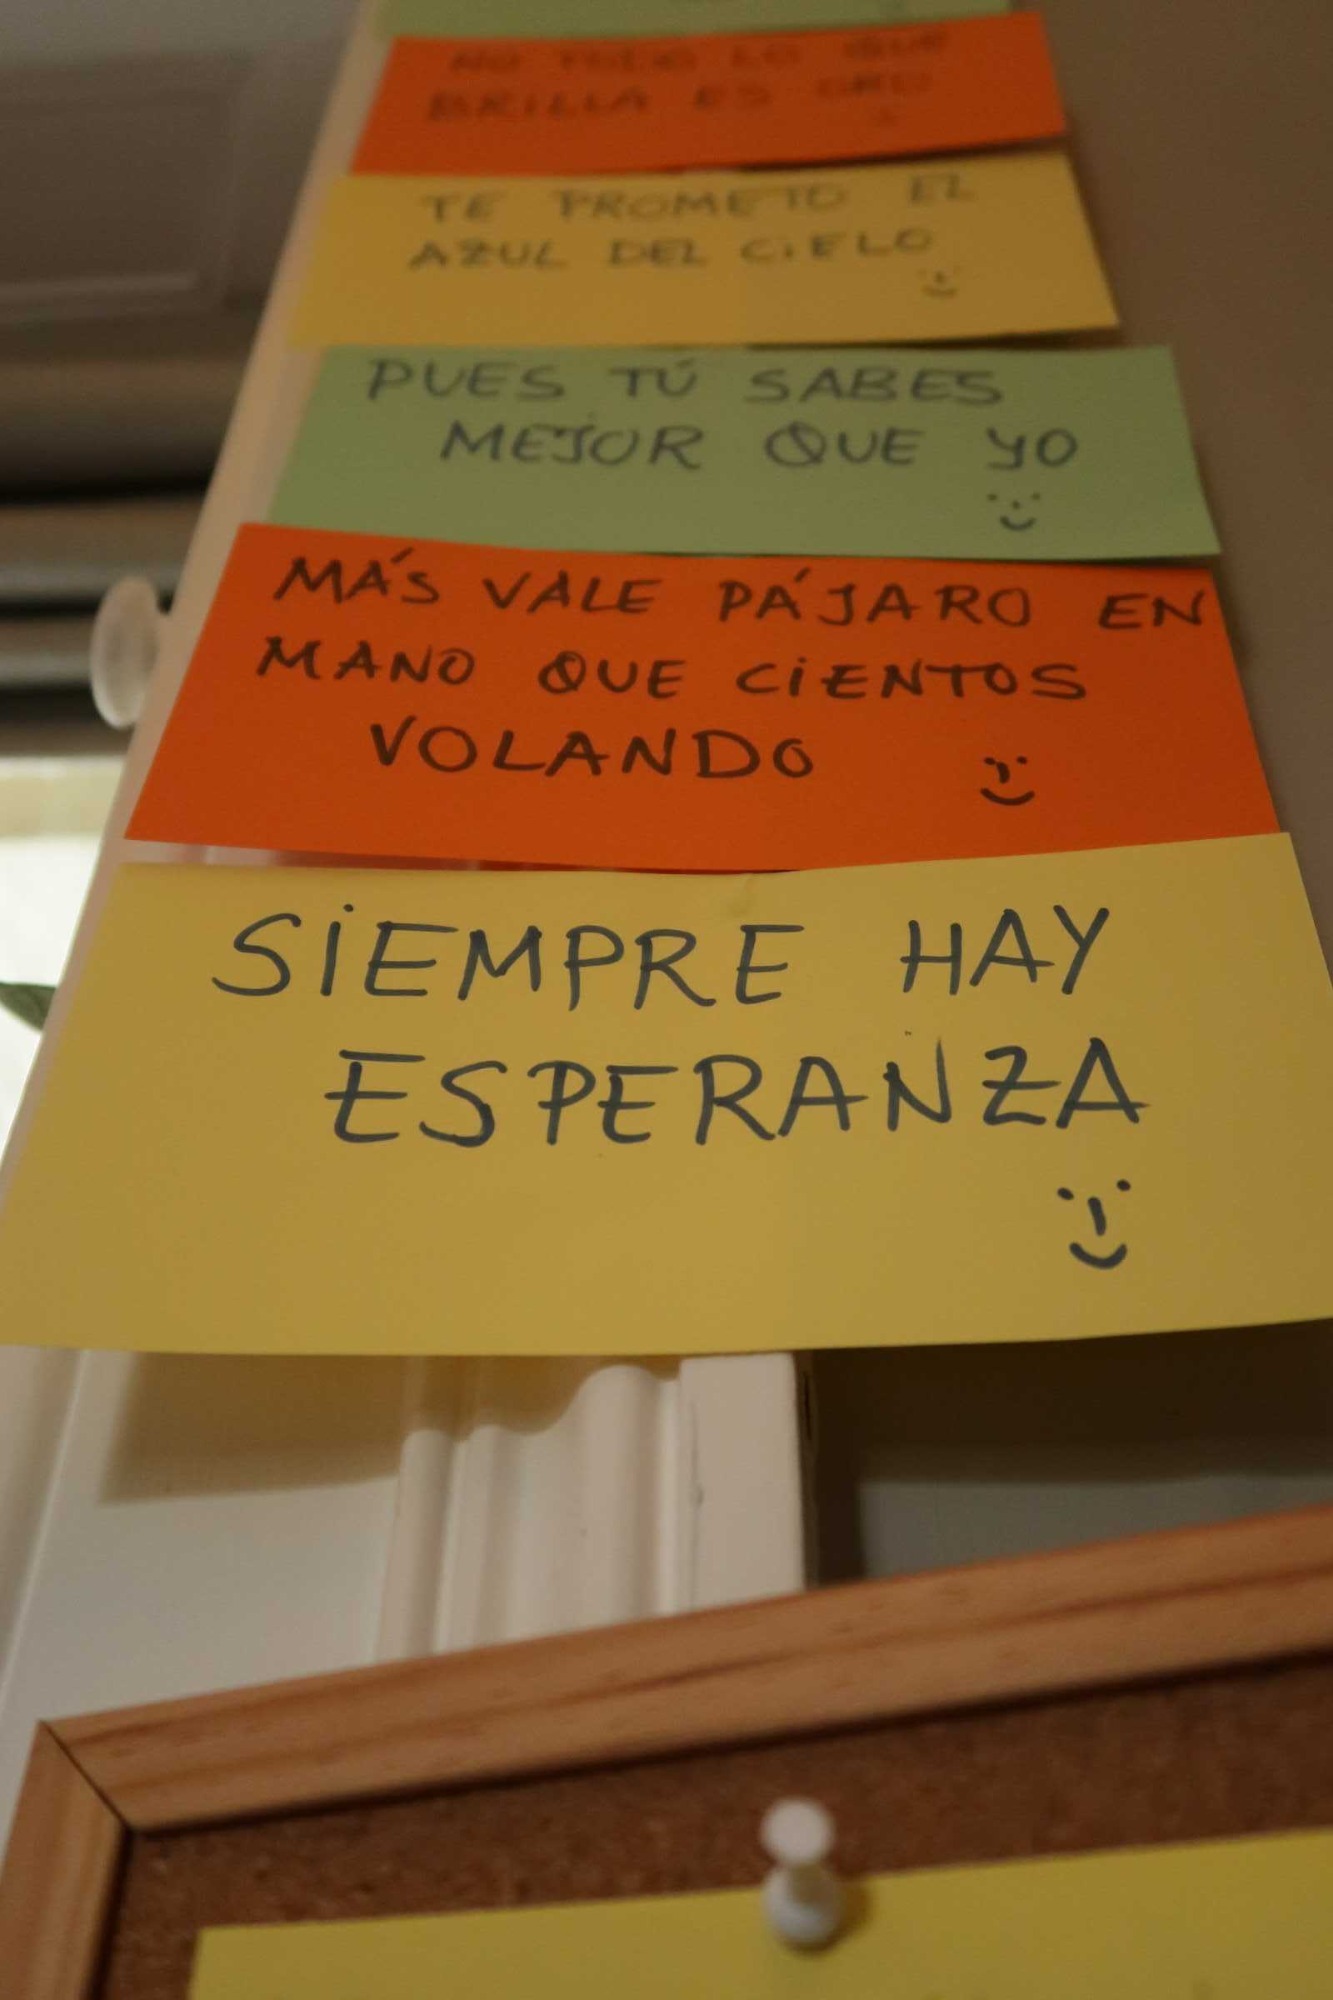 NO TODO LO QUE
BRILLA ES ORO
TE PROMETO EL
AZUL DEL CIELO
PUES TÚ SABES
MEJOR QUE YO
MÁS VALE PÁJARO EN
MANO QUE CIENTOS
VOLANDO
SIEMPRE HAY
ESPERANZA